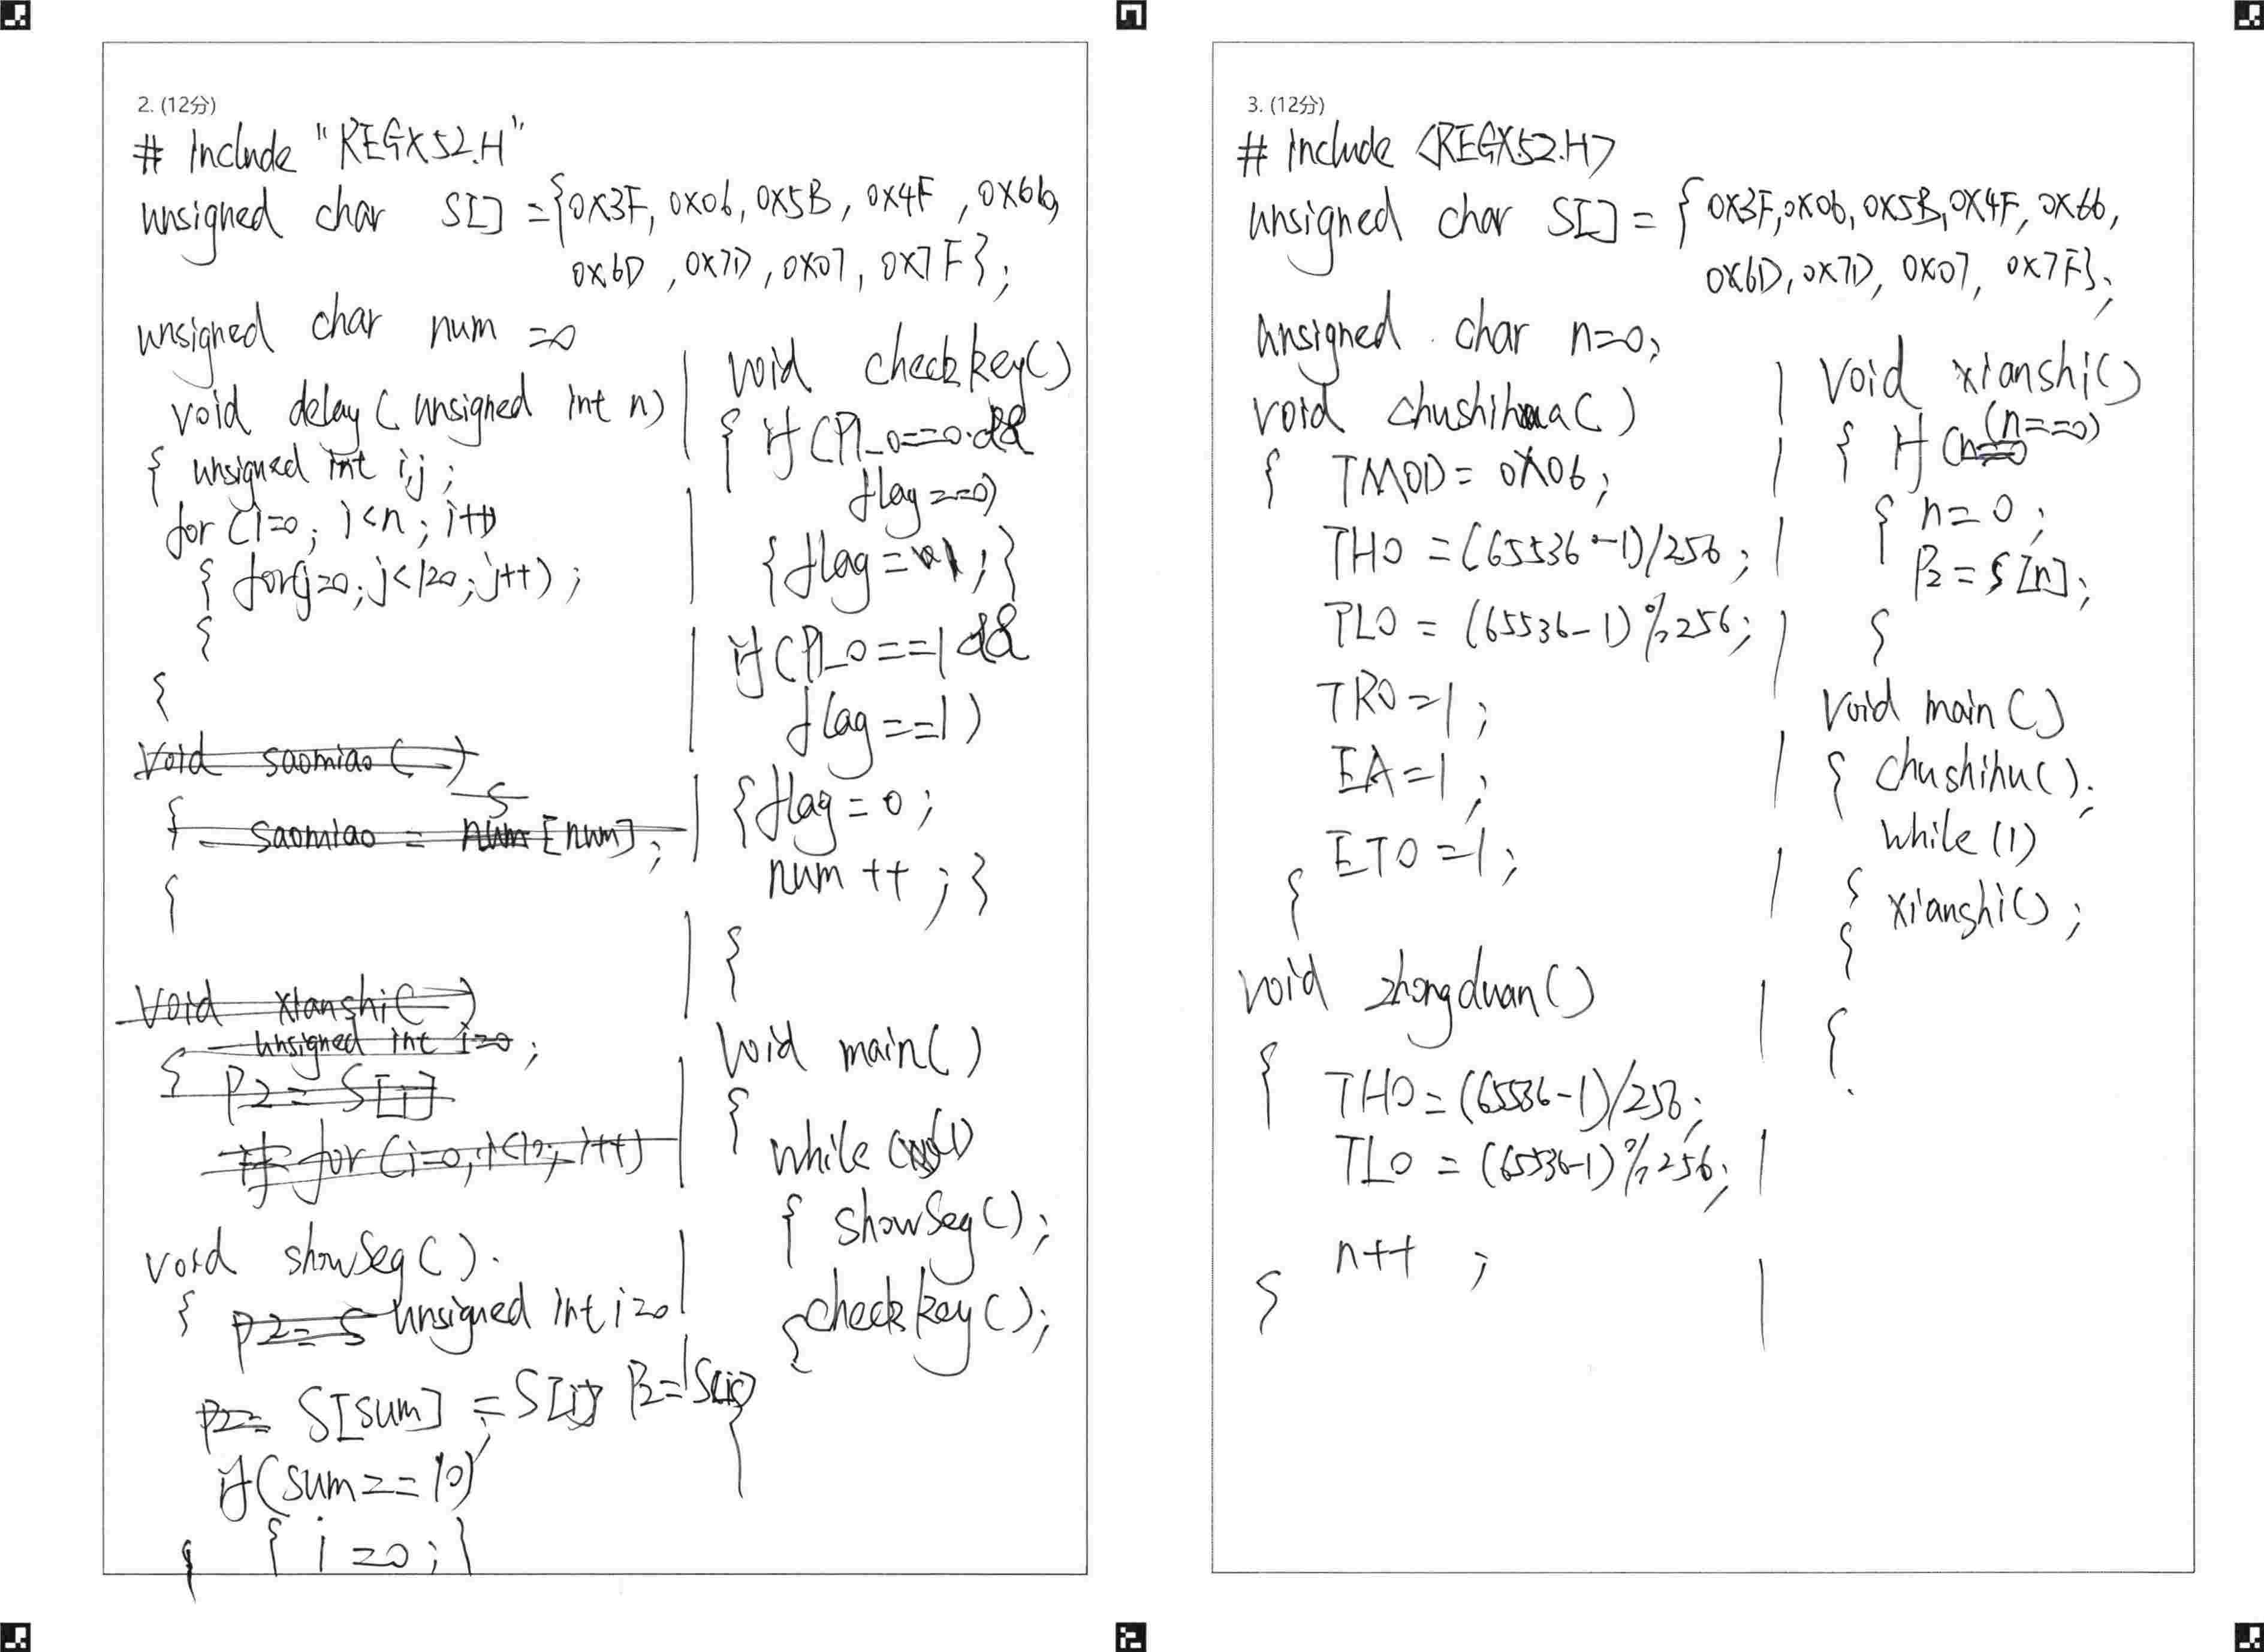 2. (12分)
# Include "REGX52.H"
unsigned char S[] ={0X3F, 0X06, 0X5B, 0X4F, 0X66,
0X6D, 0X7D, 0X07, 0X7F};
unsigned char num =0
void delay( unsigned int n)
{ unsigned int i,j ;
for (i=0; i<n; i++)
{ for(j=0; j<120; j++) ;
{
{
void saomiao( )
{ saomiao = S[num];
{
void xianshi( )
unsigned int i=0;
{ P2= S[i]
if for (i=0, i<10; i++)
void showSeg( ).
{ P2= S unsigned int i=0
P2= S[sum] = S[i]; P2=S[i]
if(sum==10)
{ i=0;}
{
void checkkey()
{ if(P1_0==0 &&
flag==0)
{flag=1;}
if(P1_0==1 &&
flag==1)
{flag=0;
num++;}
{
Void main()
{
while (1)
{ showSeg();
{checkkey();
{
3. (12分)
# Include <REGX52.H>
unsigned char S[] = { 0X3F,0X06, 0X5B,0X4F, 0X66,
0X6D, 0X7D, 0X07, 0X7F};
unsigned char n=0;
void chushihua( )
{ TMOD= 0X06;
TH0 =(65536-1)/256;
TL0 = (65536-1)%256;
TR0=1;
EA=1;
ET0=1;
{
void zhongduan()
{ TH0=(65536-1)/256;
TL0 = (65536-1)%256;
n++ ;
{
Void xianshi()
{ If (n==0)
{ n=0;
P2=S[n];
{
Void main()
{ chushihu();
while (1)
{ xianshi();
{
{